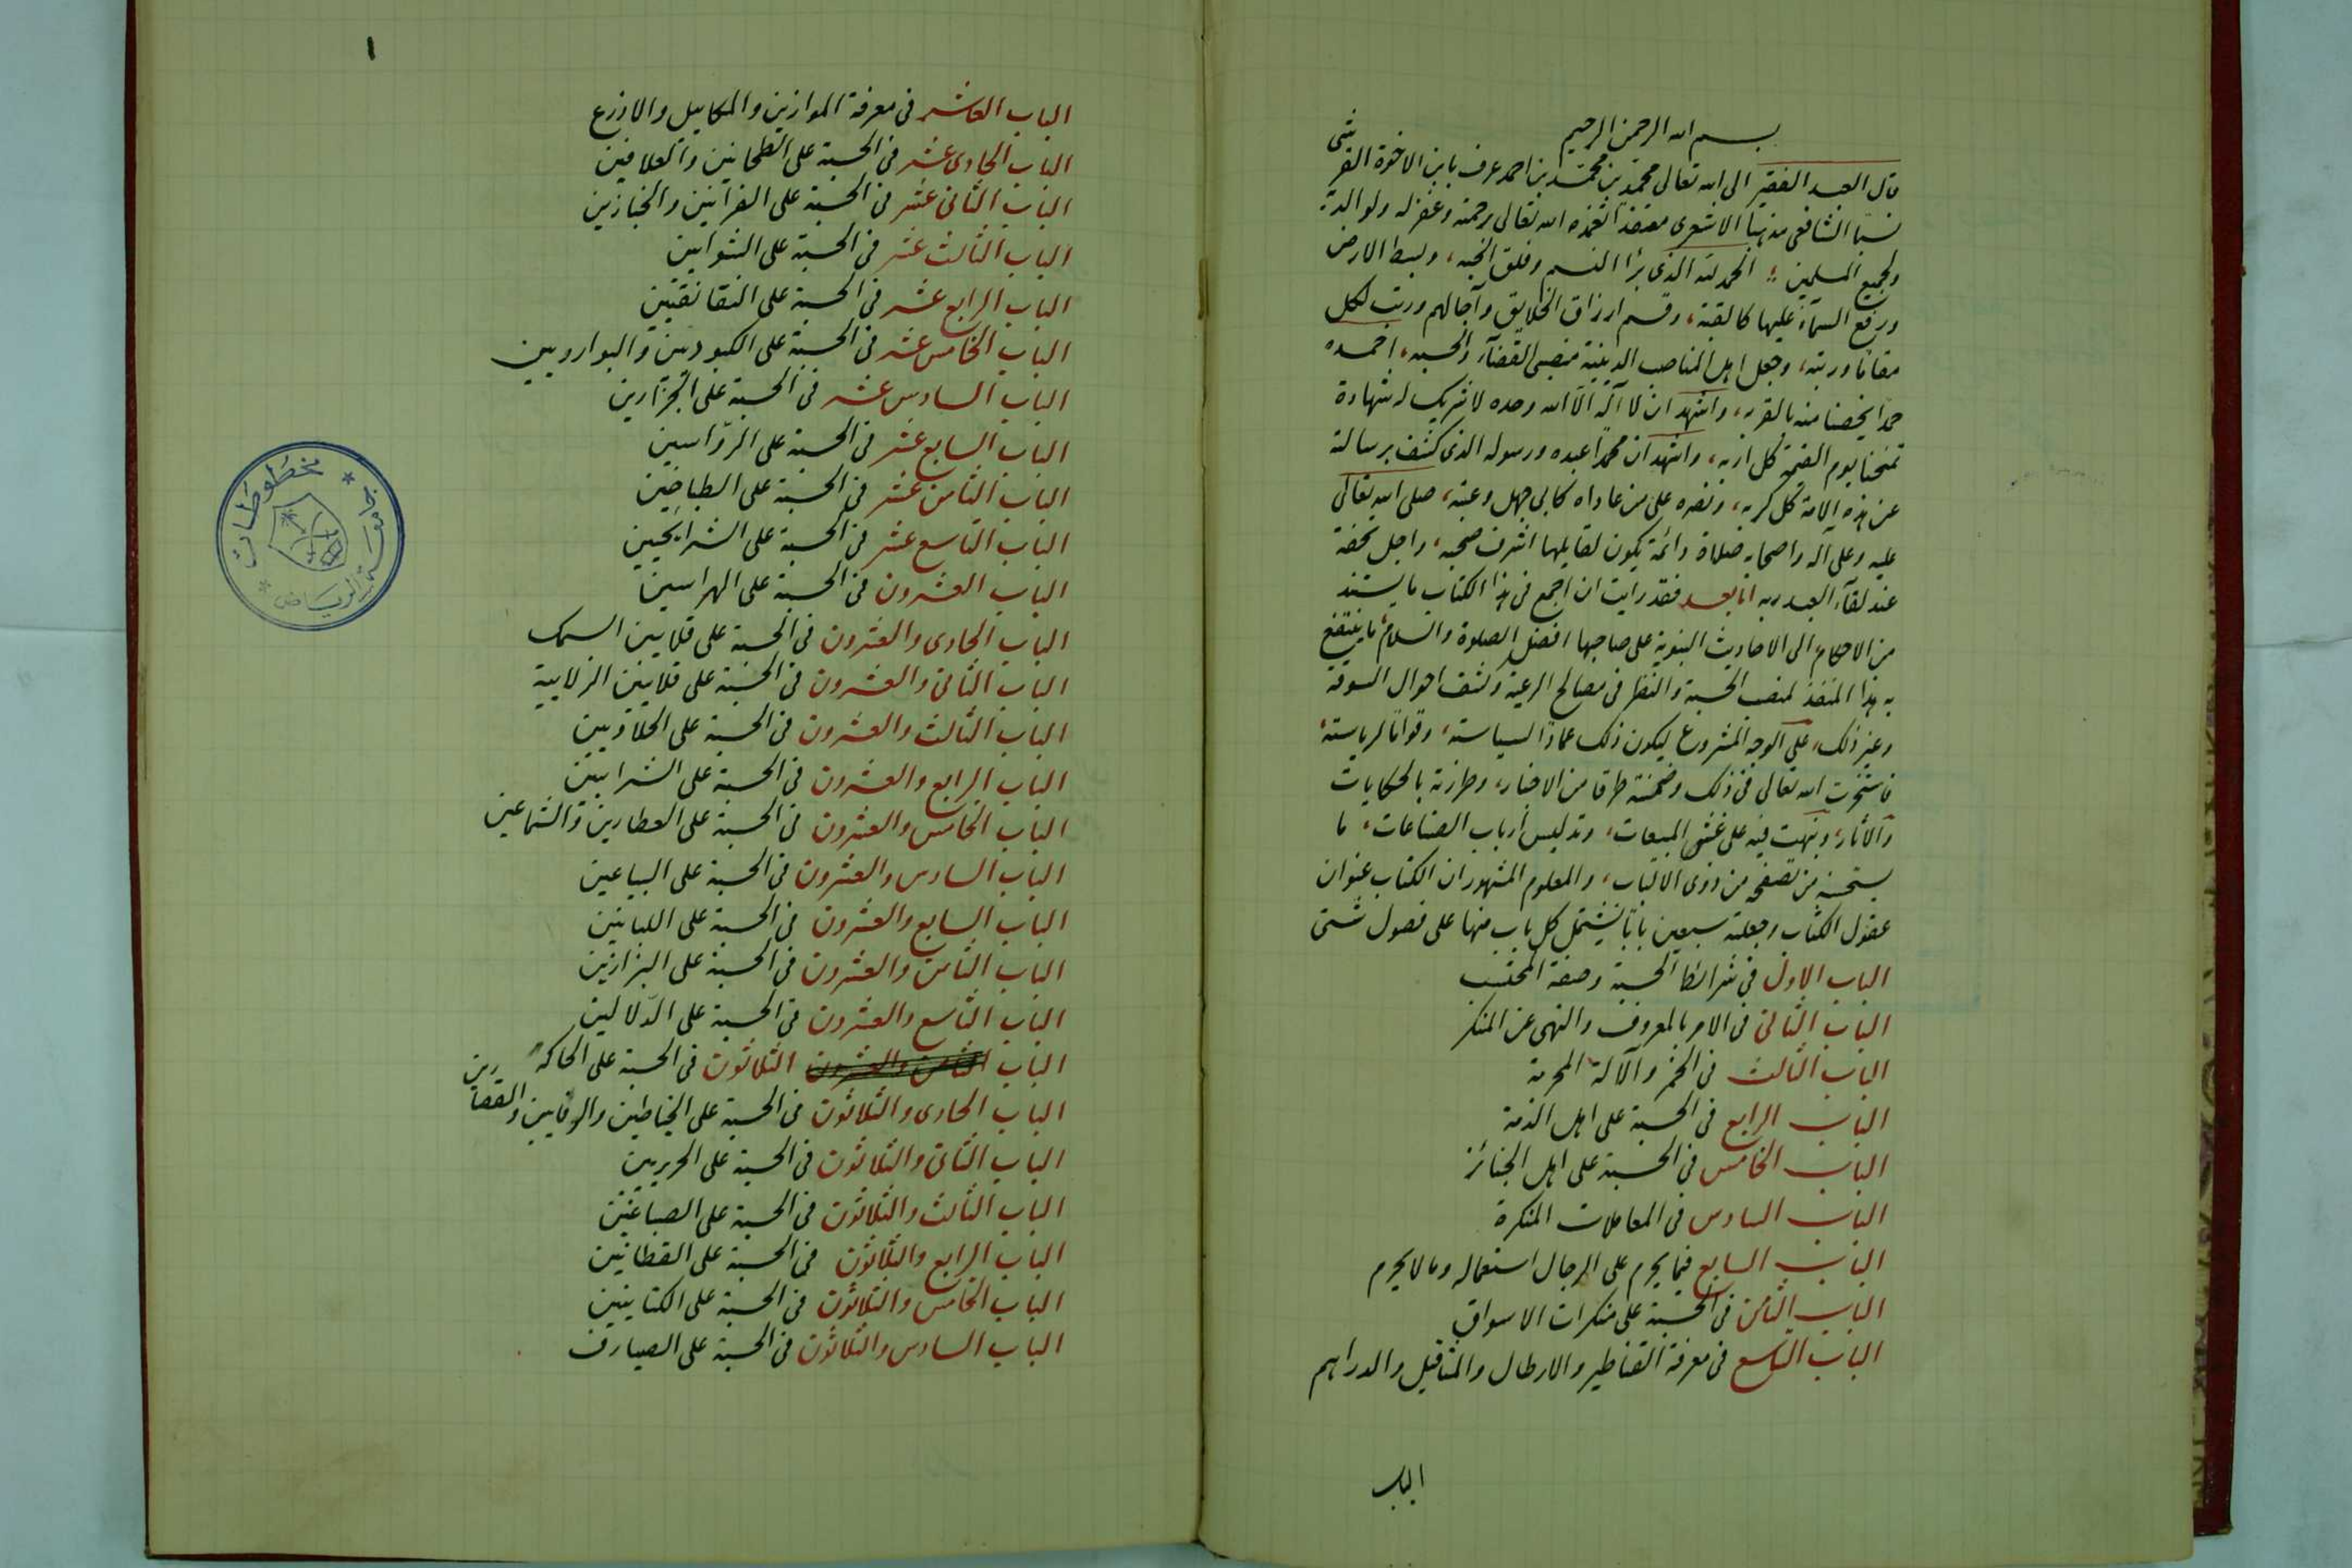 بسم الله الرحمن الرحيم
قال العبد الفقير الى الله تعالى محمد بن محمد بن احمد عرف بابن الاخوة القرشى
نسبا الشافعى مذهبا الاشعرى معتقدا تغمده الله تعالى برحمته وغفر له ولوالديه
ولجميع المسلمين الحمد لله الذى برأ النسم وفلق الحبه، وبسط الارض
ورفع السمآء عليها كالقبة، وقسم ارزاق الخلايق وآجالهم ورتب لكل
مقاما ورتبه، وجعل اهل المناصب الدينية منصبى القضآء والحسبه، احمده
حمدا يخصنا منه بالقربه، واشهد ان لا آله الا الله وحده لا شريك له شهادة
تمنحنا يوم القيمة كل اربه، واشهد ان محمدا عبده ورسوله الذى كشف برسالته
عن هذه الامة كل كربه، ونصره على من عاداه كابى جهل وعتبه، صلى الله تعالى
عليه وعلى آله واصحابه صلاة دائمة يكون لقايلها اشرف صحبه، واجل تحفة
عند لقآء العبد ربه اما بعد فقد رايت ان اجمع فى هذا الكتاب ما يستند
من الاحكام الى الاحاديث النبوية على صاحبها افضل الصلوة والسلام، ما ينتفع
به هذا المنفذ لمنصب الحسبة والنظر فى مصالح الرعية وكشف احوال السوقة
وغير ذلك، على الوجه المشروع ليكون ذلك عمادا لسياسته، وقواما لرياسته،
فاستخرت الله تعالى فى ذلك وضمنته طرفا من الاخبار، وطرزته بالحكايات
والآثار، ونبهت فيه على غش المبيعات، وتدليس أرباب الصناعات، ما
يستحسنه من تصفحه من ذوى الالباب، والمعلوم المشهور ان الكتاب عنوان
عقول الكتاب وجعلته سبعين بابا يشتمل كل باب منها على فصول شتى
الباب الاول فى شرائط الحسبة وصفة المحتسب
الباب الثانى فى الامر بالمعروف والنهى عن المنكر
الباب الثالث فى الخمر والآلة المحرمة
الباب الرابع فى الحسبة على اهل الذمة
الباب الخامس فى الحسبة على اهل الجنائز
الباب السادس فى المعاملات المنكرة
الباب السابع فيما يحرم على الرجال استعماله وما لا يحرم
الباب الثامن فى الحسبة على منكرات الاسواق
الباب التاسع فى معرفة القناطير والارطال والمثاقيل والدراهم
الباب
١
الباب العاشر فى معرفة الموازين والمكاييل والاذرع
الباب الحادى عشر فى الحسبة على الطحانين والعلافين
الباب الثانى عشر فى الحسبة على الفرانين والخبازين
الباب الثالث عشر فى الحسبة على الشوايين
الباب الرابع عشر فى الحسبة على النقانقيين
الباب الخامس عشر فى الحسبة على الكبوديين والبوارديين
الباب السادس عشر فى الحسبة على الجزارين
الباب السابع عشر فى الحسبة على الرواسين
الباب الثامن عشر فى الحسبة على الطباخين
الباب التاسع عشر فى الحسبة على الشرايحيين
الباب العشرون فى الحسبة على الهراسين
الباب الحادى والعشرون فى الحسبة على قلايين السمك
الباب الثانى والعشرون فى الحسبة على قلايين الزلابية
الباب الثالث والعشرون فى الحسبة على الحلاويين
الباب الرابع والعشرون فى الحسبة على الشرابيين
الباب الخامس والعشرون فى الحسبة على العطارين والشماعين
الباب السادس والعشرون فى الحسبة على البياعين
الباب السابع والعشرون فى الحسبة على اللبانين
الباب الثامن والعشرون فى الحسبة على البزازين
الباب التاسع والعشرون فى الحسبة على الدلالين
الباب الثامن والعشرون الثلاثون فى الحسبة على الحاكه
الباب الحادى والثلاثون فى الحسبة على الخياطين والرفايين والقصارين
الباب الثانى والثلاثون فى الحسبة على الحريريين
الباب الثالث والثلاثون فى الحسبة على الصباغين
الباب الرابع والثلاثون فى الحسبة على القطانين
الباب الخامس والثلاثون فى الحسبة على الكتانيين
الباب السادس والثلاثون فى الحسبة على الصيارف
جامعة الرياض * مخطوطات *